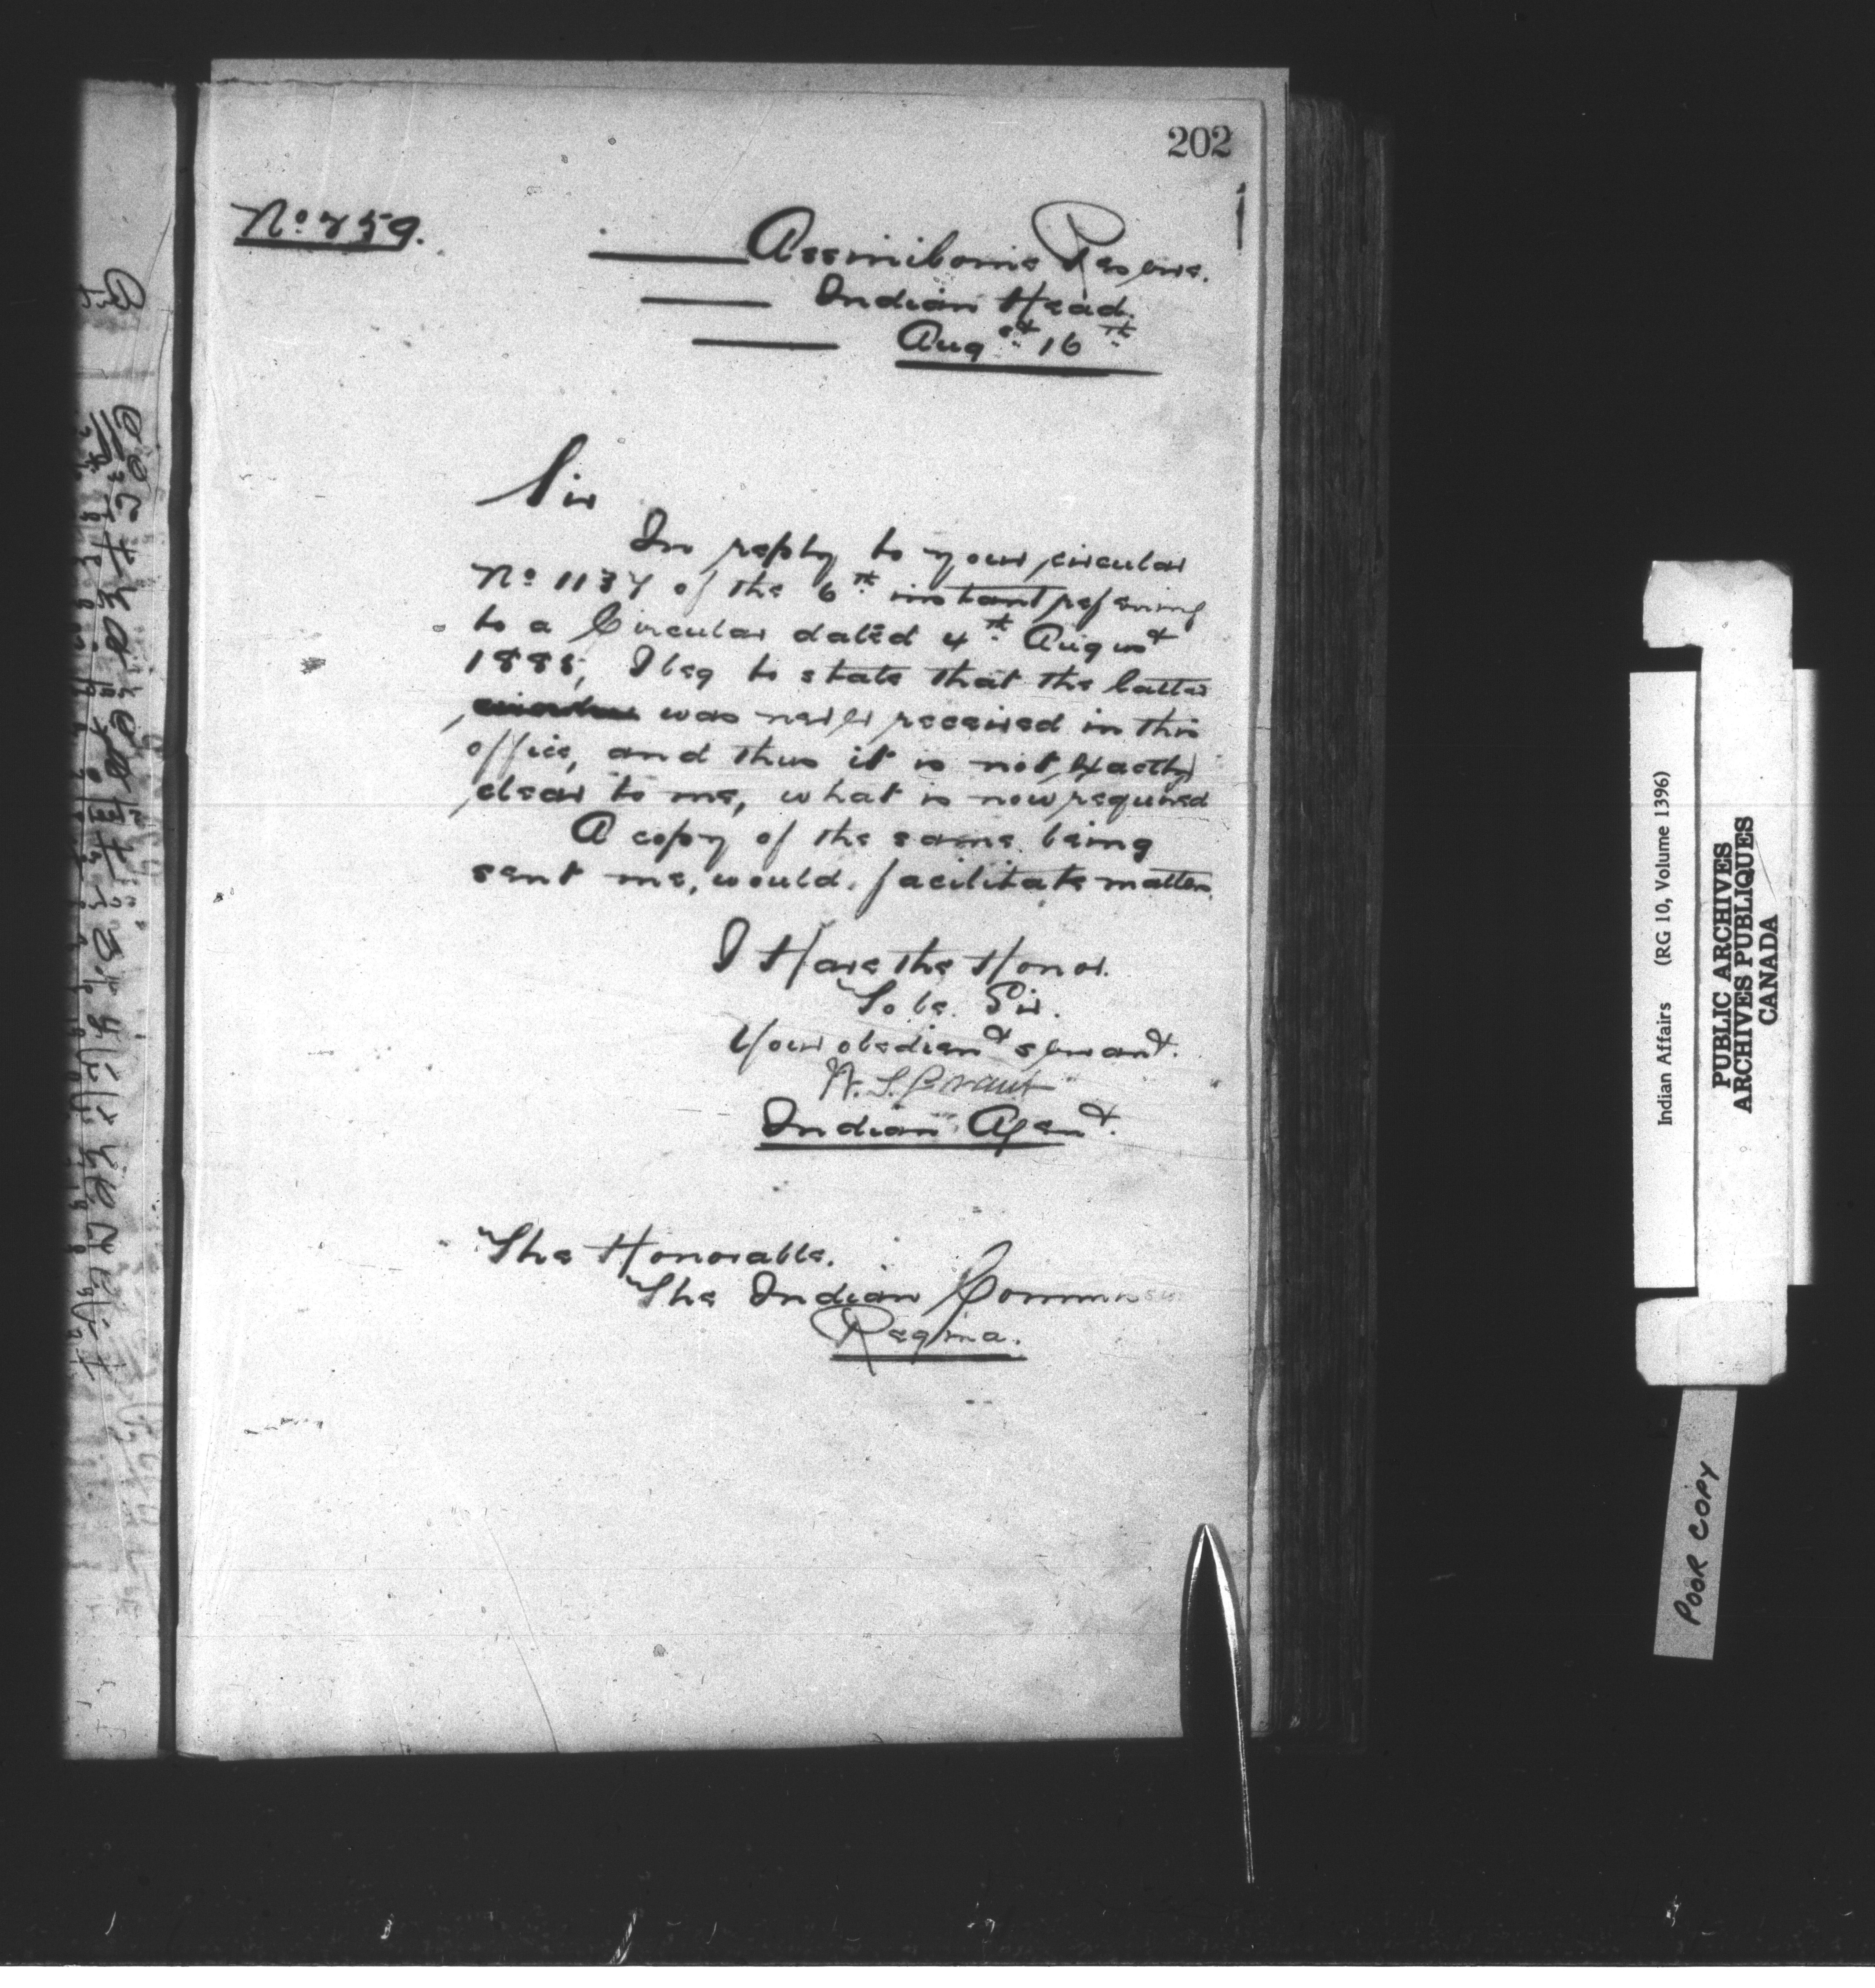 202
No 759.
Assiniboine Reserve.
Indian Head.
Augst 16th
Sir
In reply to your circular
No 1137 of the 6th instant refering
to a Circular dated 4th August
1885, I beg to state that the latter
was never received in this
office, and thus it is not exactly
clear to me, what is now required
A copy of the same being
sent me, would facilitate matters
I Have the Honor.
To be. Sir.
Your obedient servant.
W. S. Grant
Indian Agent.
The Honorable.
The Indian
Regina.
Indian Affairs (RG 10, Volume 1396)
PUBLIC ARCHIVES
ARCHIVES PUBLIQUES
CANADA
POOR COPY